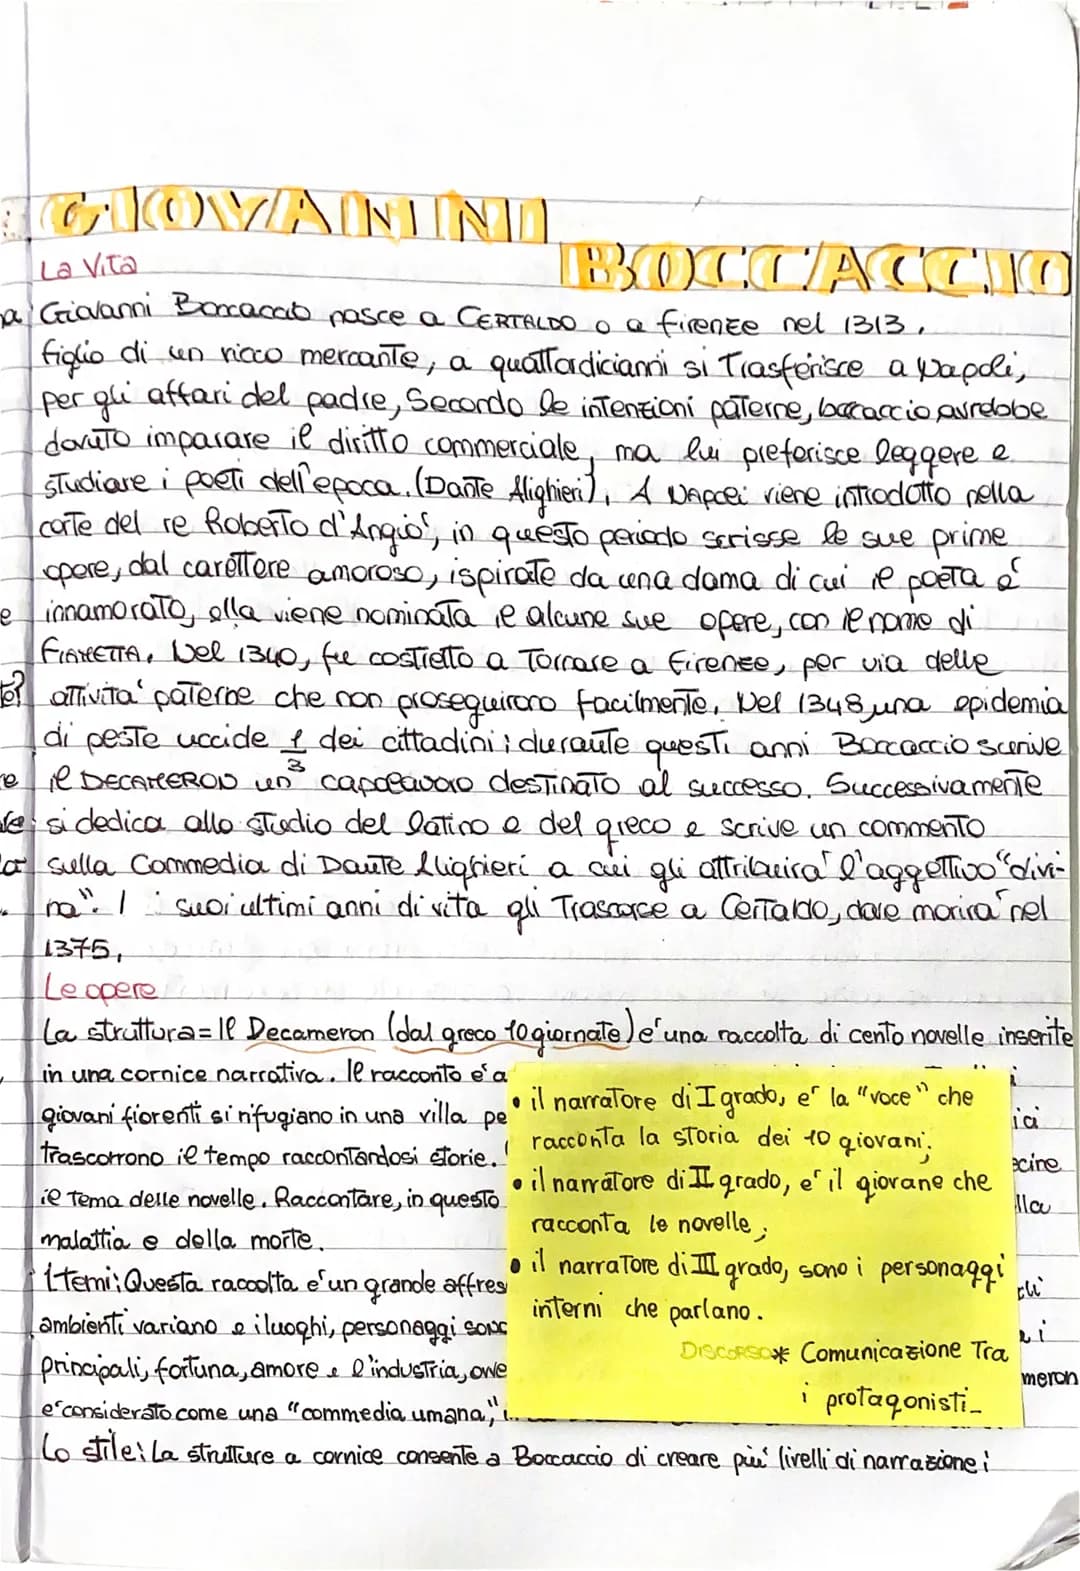 GIOVANNI
BOCCACCIO
La Vita
Giovanni Boccaccio nasce a CERTALDO o a firenze nel 1313,
figlio di un ricco mercante, a quattordicianni si Trasferisce a Napoli,
per gli affari del padre, Secondo le intenzioni paterne, boccaccio avrebbe
dovuto imparare il diritto commerciale, ma lui preferisce leggere e
studiare i poeti dell'epoca. (Dante Alighieri), A Napoli viene introdotto nella
corte del re Roberto d'Angiò, in questo periodo scrisse le sue prime
opere, dal carattere amoroso, ispirate da una dama di cui il poeta è
innamorato, ella viene nominata il alcune sue opere, con il nome di
FIAMETTA. Nel 1340, fu costretto a Tornare a Firenze, per via delle
attività paterne che non proseguirono facilmente. Nel 1348 una epidemia
di peste uccide 1/3 dei cittadini; durante questi anni Boccaccio scrive
il DECAMERON un capolavoro destinato al successo. Successivamente
si dedica allo studio del latino e del greco e scrive un commento
sulla Commedia di Dante Alighieri a cui gli attribuirà l'aggettivo "divi-
na". I suoi ultimi anni di vita gli Trascorre a Certaldo, dove morirà nel
1375,
Le opere
La struttura= Il Decameron (dal greco 10 giornate) e' una raccolta di cento novelle inserite
in una cornice narrativa. Il racconto e' a
giovani fiorenti si rifugiano in una villa pe
trascorrono il tempo raccontandosi storie.
il tema delle novelle. Raccontare, in questo
malattia e della morte.
I temi: Questa raccolta e' un grande affres
ambienti variano e i luoghi, personaggi sono
principali, fortuna, amore e l'industria, ovve
meron
e' considerato come una "commedia umana",
Lo stile: La strutture a cornice consente a Boccaccio di creare piu' livelli di narrazione:
• il narratore di I grado, e' la "voce" che
racconta la storia dei 10 giovani;
• il narratore di II grado, e' il giovane che
racconta le novelle;
• il narratore di III grado, sono i personaggi
interni che parlano.
DISCORSO* Comunicazione Tra
i protagonisti_